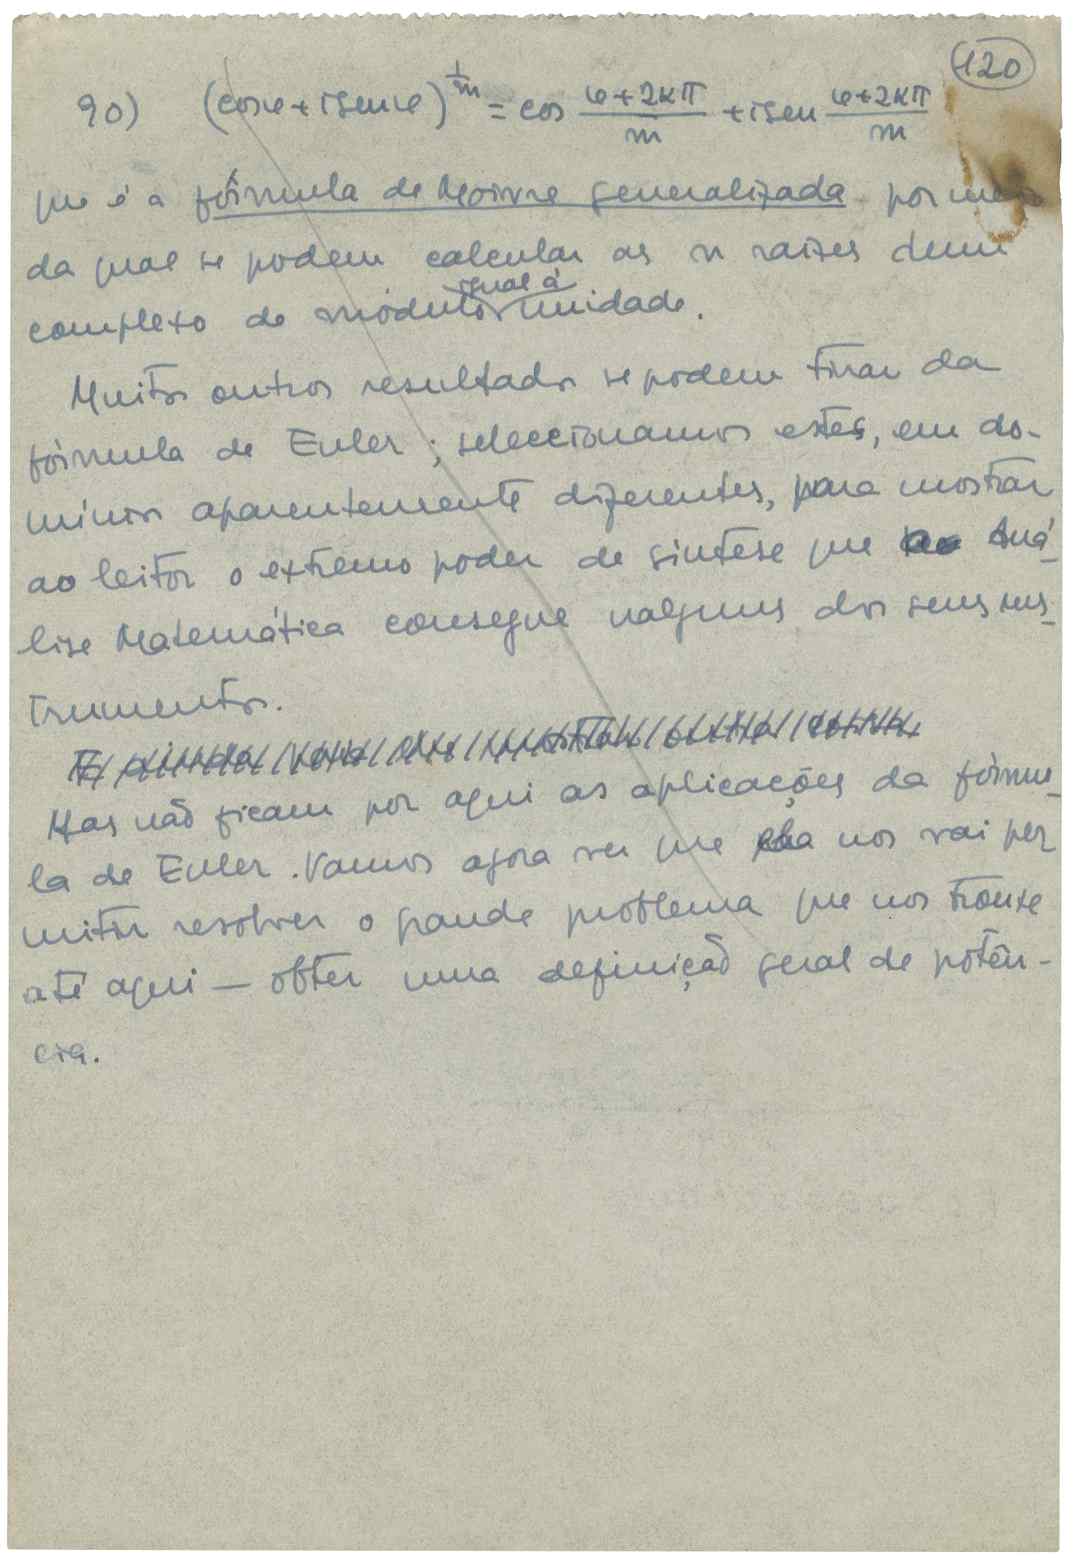 120
90) (cos φ + i sen φ)^{1/n} = cos (φ+2kπ)/n + i sen (φ+2kπ)/n
que é a fórmula de Moivre generalizada por meio
da qual se podem calcular as n raízes dum
complexo de módulo igual á unidade.
Muitos outros resultados se podem tirar da
fórmula de Euler; seleccionamos estes, em do-
mínios aparentemente diferentes, para mostrar
ao leitor o extremo poder de síntese que a Aná-
lise Matemática consegue nalguns dos seus ins-
trumentos.
E ainda
Mas não ficam por aqui as aplicações da fórmu-
la de Euler. Vamos agora ver que ela nos vai per
mitir resolver o grande problema que nos trouxe
até aqui — obter uma definição geral de potên-
cia.